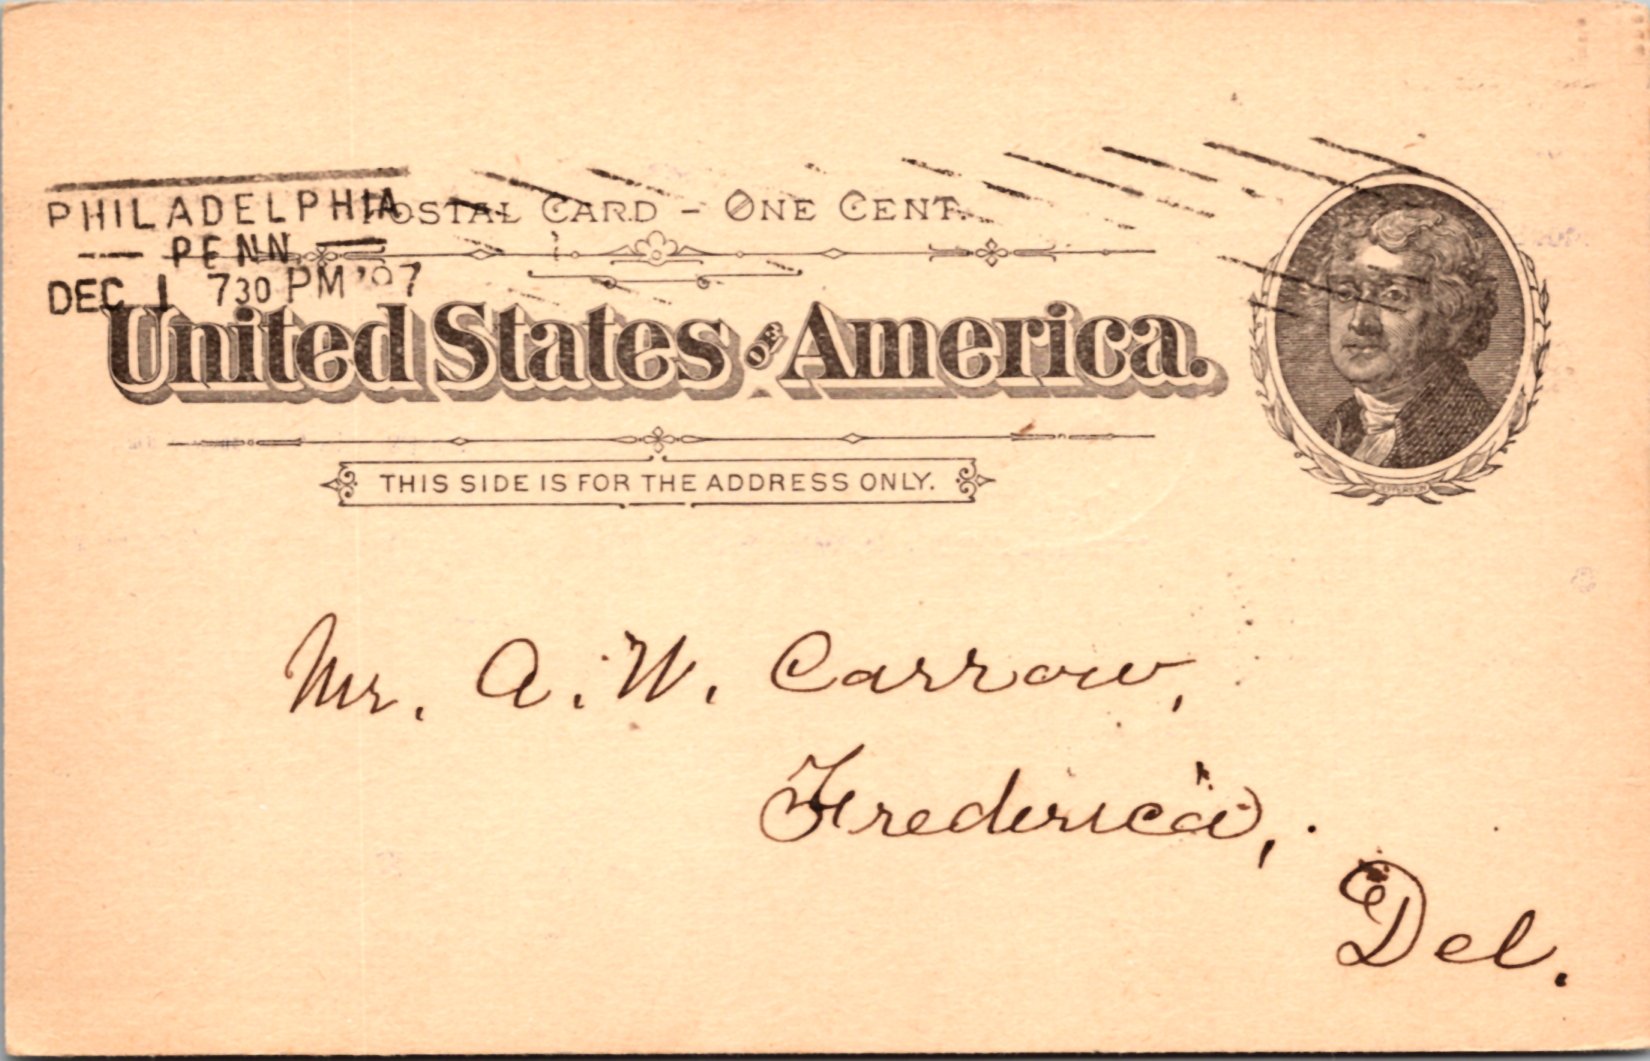 PHILADELPHIA
PENN.
DEC 1 730 PM '97
POSTAL CARD - ONE CENT.
United States OF America.
THIS SIDE IS FOR THE ADDRESS ONLY.
JEFFERSON
Mr. A. W. Carrow,
Frederica,
Del.